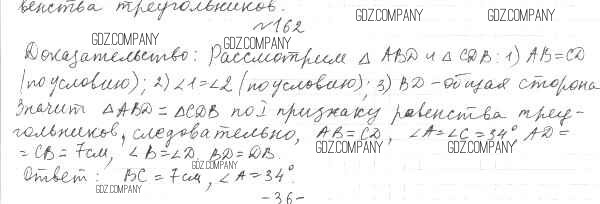 венства треугольников.
GDZ.COMPANY GDZ.COMPANY
№162
GDZ.COMPANY GDZ.COMPANY
Доказательство: Рассмотрим △ ABD и △ CDB: 1) AB=CD
(по условию); 2) ∠1=∠2 (по условию); 3) BD - общая сторона
Значит △ABD = △CDB по I признаку равенства треу-
гольников, следовательно, AB=CD, ∠A=∠C=34° AD=
= CB=7см, ∠B=∠D, BD=DB.
GDZ.COMPANY GDZ.COMPANY
GDZ.COMPANY
Ответ: BC=7см, ∠A=34°.
GDZ.COMPANY
-36-